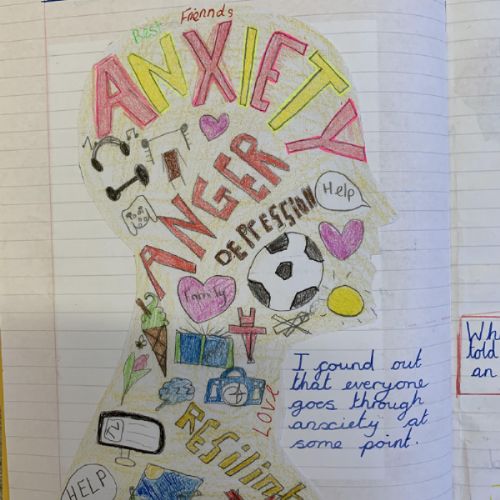 Best Friends
ANXIETY
ANGER
Help
DEPRESSION
family
I found out
that everyone
goes through
anxiety at
some point.
LOVE
RESilint
HELP
Wh
told
an